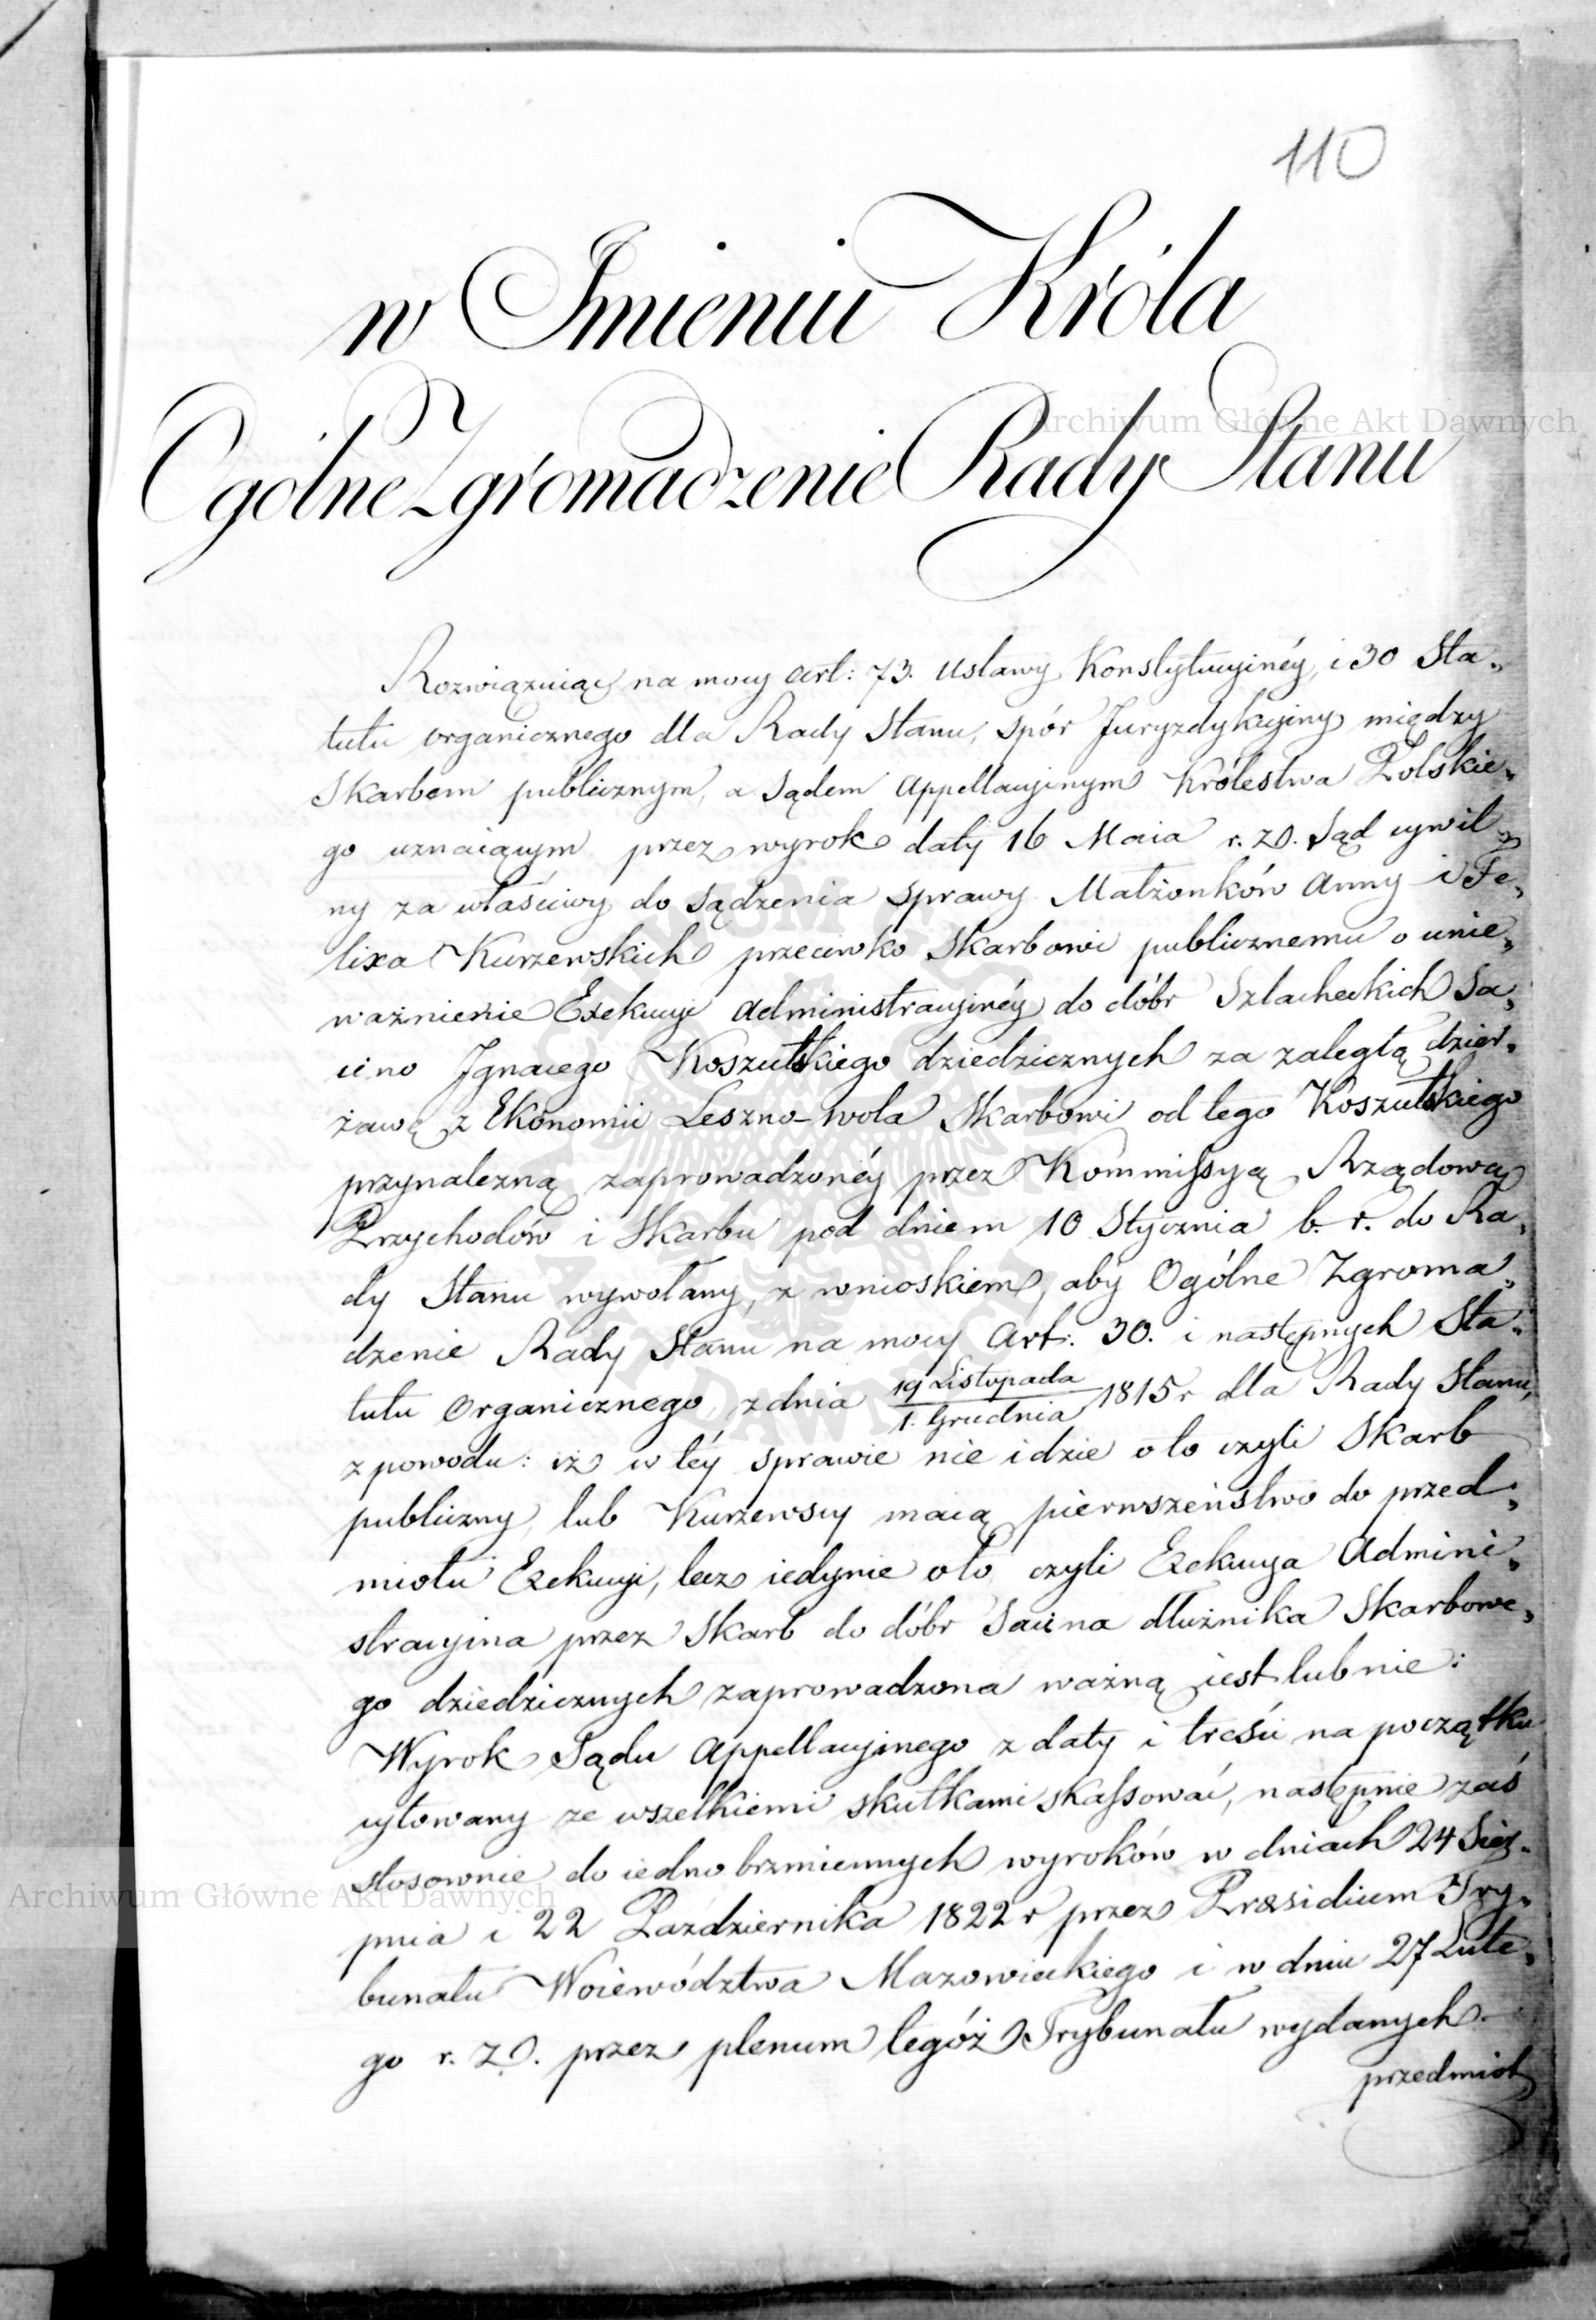 110
w Imieniu Króla
Ogólne Zgromadzenie Rady Stanu
Rozwiązuiąc na mocy art: 73. Ustawy Konstytucyinéy, i 30 Sta„
tutu organicznego dla Rady Stanu, spór Juryzdykcyiny między
Skarbem publicznym, a Sądem Appellacyinym Królestwa Polskie„
go uznaiącym przez wyrok daty 16 Maia r. z. Sąd cywil„
ny za właściwy do sądzenia sprawy Małżonków Anny i Fe„
lixa Kurzewskich przeciwko Skarbowi publicznemu o unie„
ważnienie Exekucyi Administracyinéy do dóbr Szlacheckich Sa„
cino Ignacego Koszutskiego dziedzicznych za zaległą dzier„
żawę z Ekonomii Leszno-wola Skarbowi od tego Koszutskiego
przynależną zaprowadzonéy przez Kommissyą Rządową
Przychodów i Skarbu pod dniem 10 Stycznia b. r. do Ra„
dy Stanu wywołany, z wnioskiem, aby Ogólne Zgroma„
dzenie Rady Stanu na mocy Art: 30. i następnych Sta„
tutu Organicznego z dnia 19 Listopada / 1. Grudnia 1815 r dla Rady Stanu,
z powodu: iż w téy sprawie nie idzie o to czyli Skarb
publiczny, lub Kurzewscy maią pierwszeństwo do przed„
miotu Exekucyi, lecz iedynie o to czyli Exekucya Admini„
stracyina przez Skarb do dóbr Sacina dłużnika Skarbowe„
go dziedzicznych zaprowadzona ważną iest lub nie:
Wyrok Sądu Appellacyinego z daty i treści na początku
cytowany ze wszelkiemi skutkami skassować, następnie zaś
stosownie do iednobrzmiennych wyroków w dniach 24 Sier„
pnia i 22 Października 1822 r przez Præsidium Try„
bunału Woiewództwa Mazowieckiego i w dniu 27 Lute„
go r. z. przez plenum tegóż Trybunału wydanych
przedmiot
Archiwum Główne Akt Dawnych
Archiwum Główne Akt Dawnych